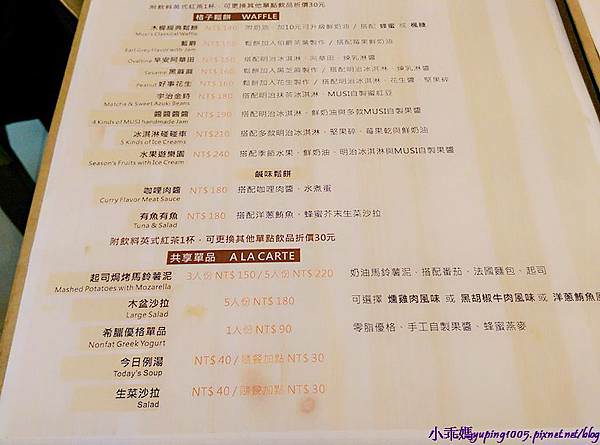 附飲料英式紅茶1杯，可更換其他單點飲品折價30元
格子鬆餅 WAFFLE
木樨經典鬆餅 NT$140 附奶油，加10元可升級鮮奶油 / 搭配 蜂蜜 或 楓糖
Musi's Classical Waffle
藍爵 NT$150 鬆餅加入伯爵茶葉製作 / 搭配莓果鮮奶油
Earl Grey Flavor with Jam
Ovaltine 早安阿華田 NT$150 搭配明治冰淇淋、阿華田、煉乳淋醬
Sesame 黑麻麻 NT$160 鬆餅加入黑芝麻製作 / 搭配明治冰淇淋、煉乳淋醬
Peanut 好事花生 NT$160 鬆餅加入花生製作 / 搭配明治冰淇淋、花生醬、堅果碎
宇治金時 NT$180 搭配明治抹茶冰淇淋、MUSI自製蜜紅豆
Matcha & Sweet Azuki Beans
醬醬醬醬 NT$190 搭配明治冰淇淋、鮮奶油與多款MUSI自製果醬
4 Kinds of MUSI handmade Jam
冰淇淋碰碰車 NT$210 搭配多款明治冰淇淋、堅果碎、莓果乾與鮮奶油
5 Kinds of Ice Creams
水果遊樂園 NT$240 搭配季節水果、鮮奶油、明治冰淇淋與MUSI自製果醬
Season's Fruits with Ice Cream
鹹味鬆餅
咖哩肉醬 NT$180 搭配咖哩肉醬、水煮蛋
Curry Flavor Meat Sauce
有魚有魚 NT$180 搭配洋蔥鮪魚、蜂蜜芥末生菜沙拉
Tuna & Salad
附飲料英式紅茶1杯，可更換其他單點飲品折價30元
共享單品 A LA CARTE
起司焗烤馬鈴薯泥 3人份 NT$ 150 / 5人份 NT$ 220 奶油馬鈴薯泥、搭配番茄、法國麵包、起司
Mashed Potatoes with Mozarella
木盆沙拉 5人份 NT$ 180 可選擇 燻雞肉風味 或 黑胡椒牛肉風味 或 洋蔥鮪魚風
Large Salad
希臘優格單品 1人份 NT$ 90 零脂優格、手工自製果醬、蜂蜜燕麥
Nonfat Greek Yogurt
今日例湯 NT$ 40 / 隨餐加點 NT$ 30
Today's Soup
生菜沙拉 NT$ 40 / 隨餐加點 NT$ 30
Salad
小乖媽yuping1005.pixnet.net/blog